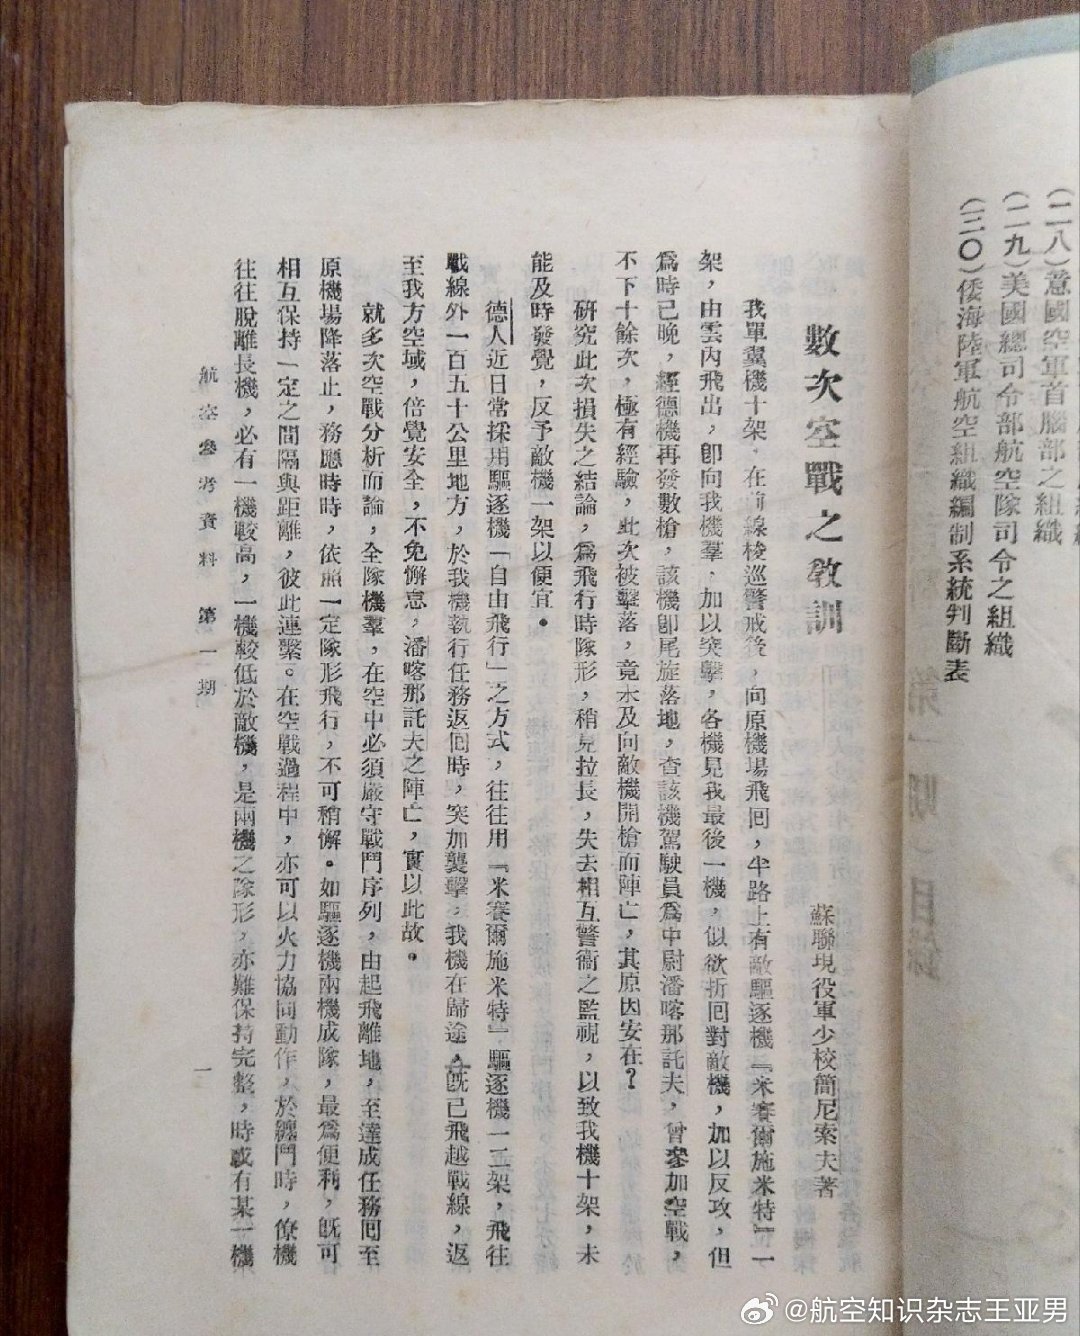 (二八)意國空軍首腦部之組織
(二九)美國總司令部航空隊司令之組織
(三〇)倭海陸軍航空組織編制系統判斷表
數次空戰之教訓
蘇聯現役軍少校簡尼索夫著
我單翼機十架,在前線梭巡警戒後,向原機場飛囘,半路上有敵驅逐機『米賽爾施米特』二
架,由雲內飛出,卽向我機羣,加以突擊,各機見我最後一機,似欲折囘對敵機,加以反攻,但
爲時已晚,經德機再發數槍,該機卽尾旋落地,查該機駕駛員爲中尉潘喀那託夫,曾參加空戰,
不下十餘次,極有經驗,此次被擊落,竟未及向敵機開槍而陣亡,其原因安在?
研究此次損失之結論,爲飛行時隊形,稍見拉長,失去相互警衞之監視,以致我機十架,未
能及時發覺,反予敵機一架以便宜。
德人近日常採用驅逐機「自由飛行」之方式,往往用『米賽爾施米特』驅逐機一二架,飛往
戰線外一百五十公里地方,於我機執行任務返囘時,突加襲擊,我機在歸途,旣已飛越戰線,返
至我方空域,倍覺安全,不免懈怠,潘喀那託夫之陣亡,實以此故。
就多次空戰分析而論,全隊機羣,在空中必須嚴守戰鬥序列,由起飛離地,至達成任務囘至
原機場降落止,務應時時,依照一定隊形飛行,不可稍懈。如驅逐機兩機成隊,最爲便利,旣可
相互保持一定之間隔與距離,彼此連繫。在空戰過程中,亦可以火力協同動作,於纏鬥時,僚機
往往脫離長機,必有一機較高,一機較低於敵機,是兩機之隊形,亦難保持完整,時或有某一機
航空參考資料 第一期
一
@航空知识杂志王亚男